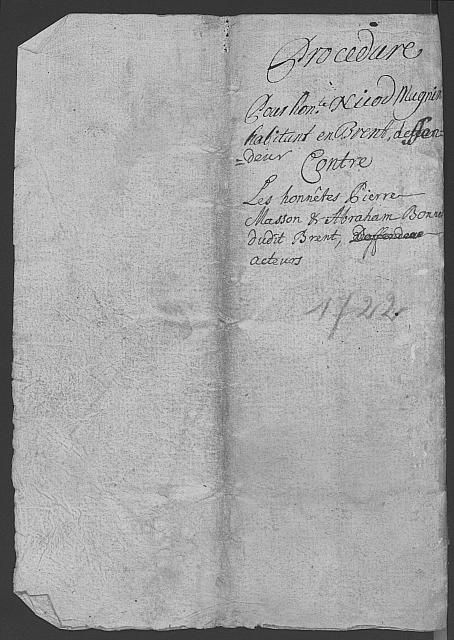 Procedure
Pour hon.te Nicod Magnin
habitant en Brent, deffen-
=deur Contre
Les honnêtes Pierre
Masson & Abraham Bonne
dudit Brent, Deffendeur
acteurs
1722